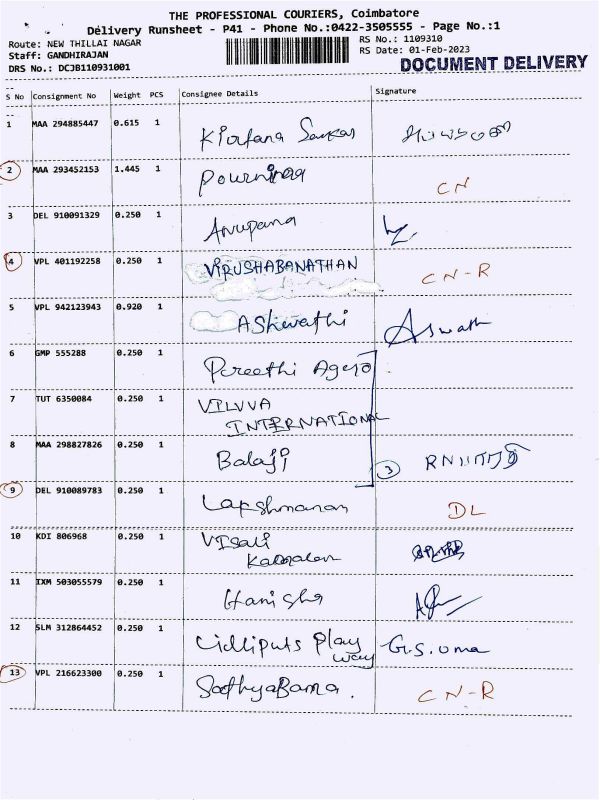 THE PROFESSIONAL COURIERS, Coimbatore
Delivery Runsheet - P41 - Phone No.:0422-3505555 - Page No.:1
Route: NEW THILLAI NAGAR RS No.: 1109310
Staff: GANDHIRAJAN RS Date: 01-Feb-2023
DRS No.: DCJB110931001 DOCUMENT DELIVERY
S No Consignment No Weight PCS Consignee Details Signature
1 MAA 294885447 0.615 1 Kirtana Sankar
2 MAA 293452153 1.445 1 Pournima CN
3 DEL 910091329 0.250 1 Anupama
4 VPL 401192258 0.250 1 VIRUSHABANATHAN CN-R
5 VPL 942123943 0.920 1 Ashwathi Aswath
6 GMP 555288 0.250 1 Preethi
7 TUT 6350084 0.250 1 VILVVA
INTERNATIONAL
8 MAA 298827826 0.250 1 Balaji 3
9 DEL 910089783 0.250 1 Lakshmanan DL
10 KDI 806968 0.250 1 Visali
11 IXM 503055579 0.250 1 Hanisha
12 SLM 312864452 0.250 1 Lilliputs Play
way G.S.uma
13 VPL 216623300 0.250 1 SathyaBama. CN-R